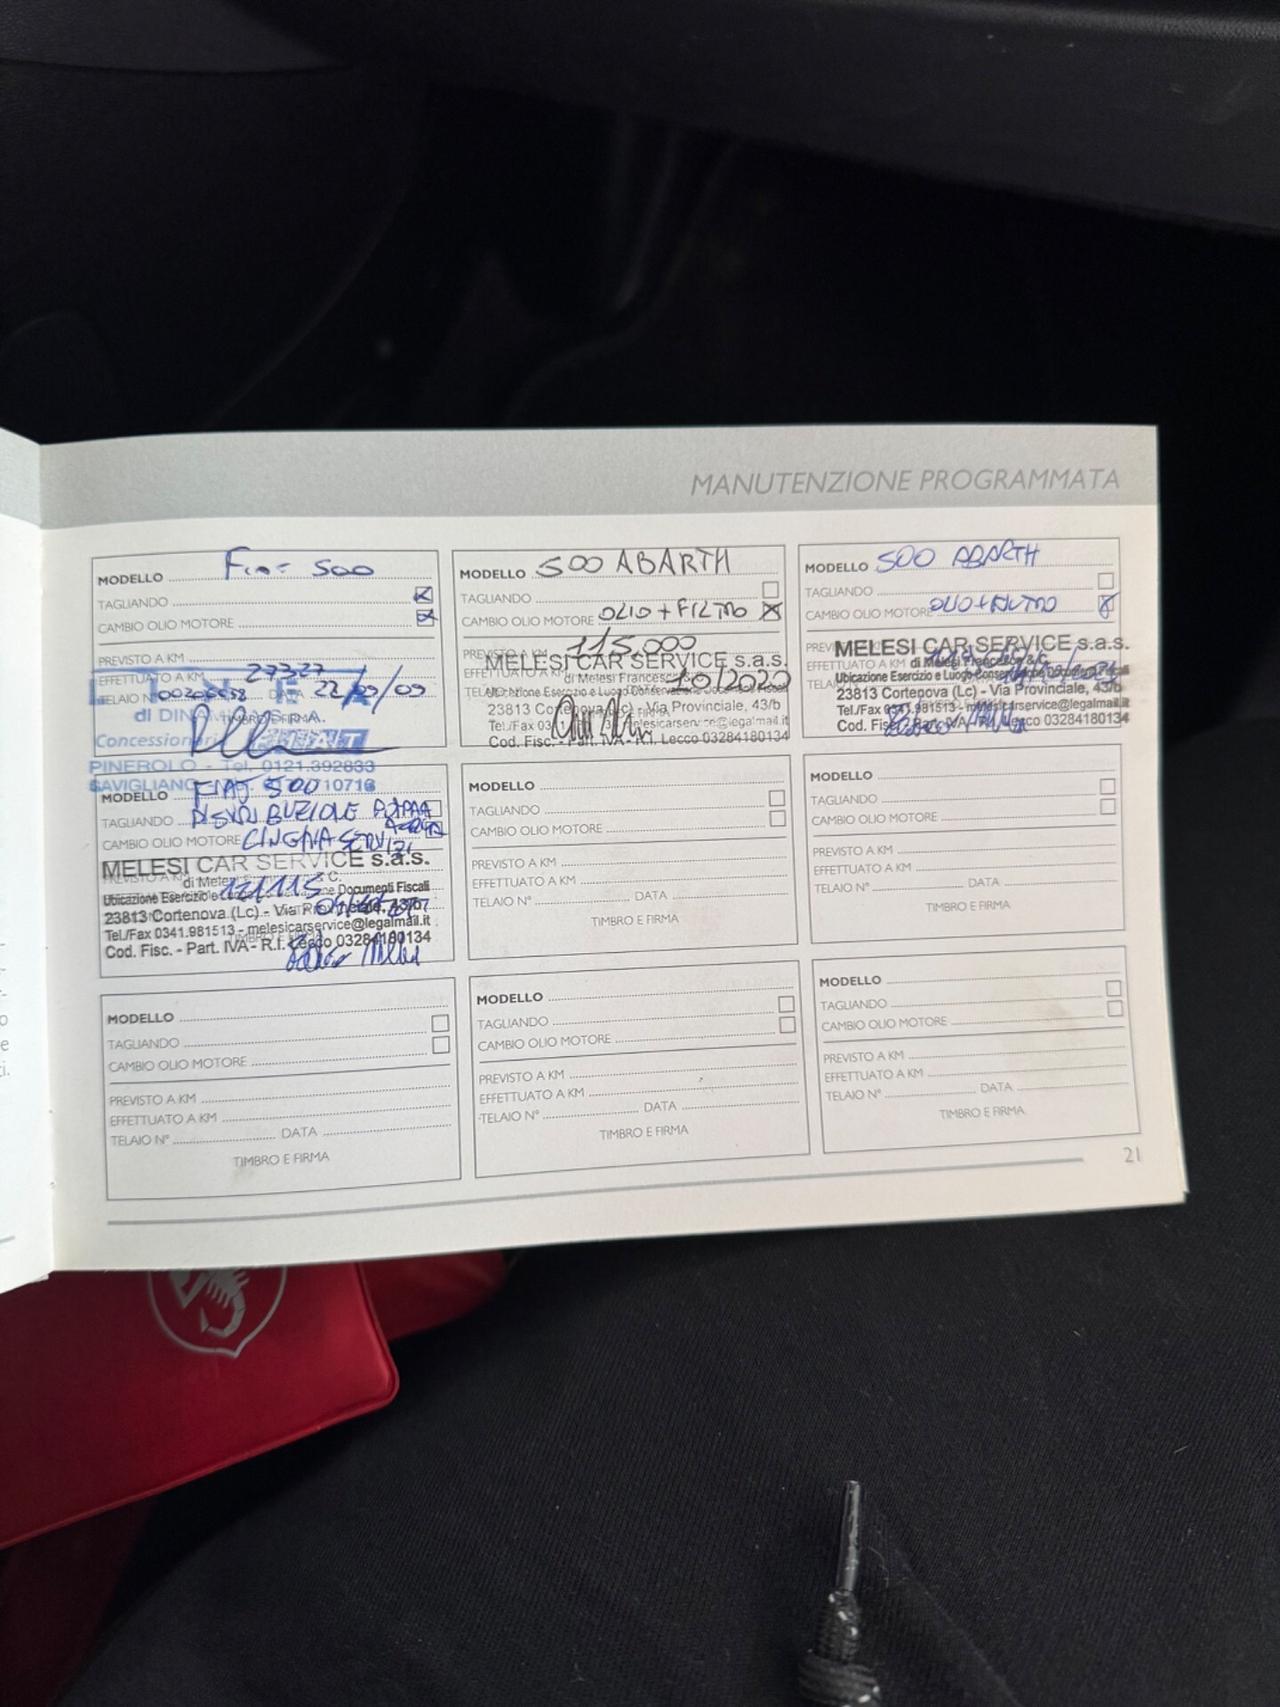 MANUTENZIONE PROGRAMMATA
MODELLO Fiat 500
TAGLIANDO
CAMBIO OLIO MOTORE
PREVISTO A KM
EFFETTUATO A KM 27327
TELAIO N° DATA 22/09/09
di DINA
TIMBRO E FIRMA
Concessionari FIAT
PINEROLO - Tel. 0121.392833
SAVIGLIANO 10716
MODELLO 500 ABARTH
TAGLIANDO
CAMBIO OLIO MOTORE OLIO + FILTRO
PREVISTO A KM 115.000
MELESI CAR SERVICE s.a.s.
EFFETTUATO A KM
di Melesi Francesco
10/2020
Ubicazione Esercizio e Luogo Conservazione Documenti Fiscali
23813 Cortenova (Lc) - Via Provinciale, 43/b
Tel./Fax 03 melesicarservice@legalmail.it
Cod. Fisc. - Part. IVA - R.I. Lecco 03284180134
MODELLO 500 ABARTH
TAGLIANDO
CAMBIO OLIO MOTORE OLIO + FILTRO
MELESI CAR SERVICE s.a.s.
EFFETTUATO A KM
di Melesi Francesco & C.
Ubicazione Esercizio e Luogo Conservazione Documenti Fiscali
23813 Cortenova (Lc) - Via Provinciale, 43/b
Tel./Fax 0341.981513 - melesicarservice@legalmail.it
Cod. Fisc. - Part. IVA - R.I. Lecco 03284180134
MODELLO FIAT 500
TAGLIANDO DISTRIBUZIONE POMPA
ACQUA
CAMBIO OLIO MOTORE CINGHIA SERVIZI
MELESI CAR SERVICE s.a.s.
di Melesi C.
121115
Ubicazione Esercizio e Luogo Conservazione Documenti Fiscali
23813 Cortenova (Lc) - Via Provinciale, 43/b
Tel./Fax 0341.981513 - melesicarservice@legalmail.it
Cod. Fisc. - Part. IVA - R.I. Lecco 03284180134
MODELLO
TAGLIANDO
CAMBIO OLIO MOTORE
PREVISTO A KM
EFFETTUATO A KM
TELAIO N° DATA
TIMBRO E FIRMA
MODELLO
TAGLIANDO
CAMBIO OLIO MOTORE
PREVISTO A KM
EFFETTUATO A KM
TELAIO N° DATA
TIMBRO E FIRMA
MODELLO
TAGLIANDO
CAMBIO OLIO MOTORE
PREVISTO A KM
EFFETTUATO A KM
TELAIO N° DATA
TIMBRO E FIRMA
MODELLO
TAGLIANDO
CAMBIO OLIO MOTORE
PREVISTO A KM
EFFETTUATO A KM
TELAIO N° DATA
TIMBRO E FIRMA
MODELLO
TAGLIANDO
CAMBIO OLIO MOTORE
PREVISTO A KM
EFFETTUATO A KM
TELAIO N° DATA
TIMBRO E FIRMA
21